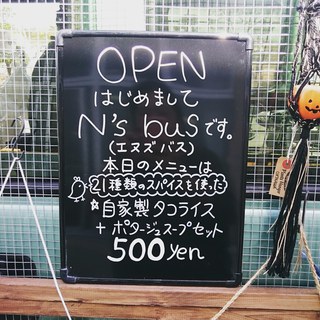 OPEN
はじめまして
N's busです。
(エヌズバス)
本日のメニューは
21種類のスパイスを使った
☆自家製タコライス
+ポタージュスープセット
500yen